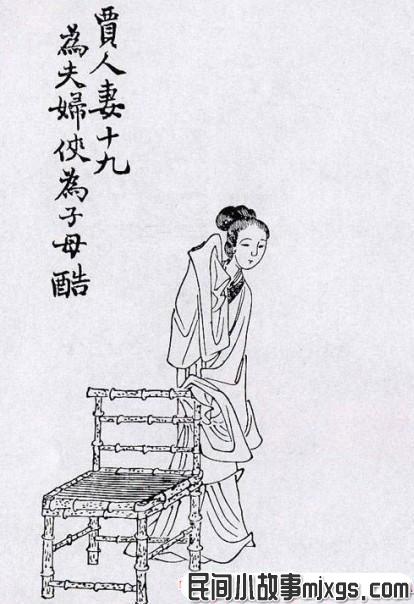 賈人妻十九
為夫婦俠為子母酷
民间小故事mixgs.com